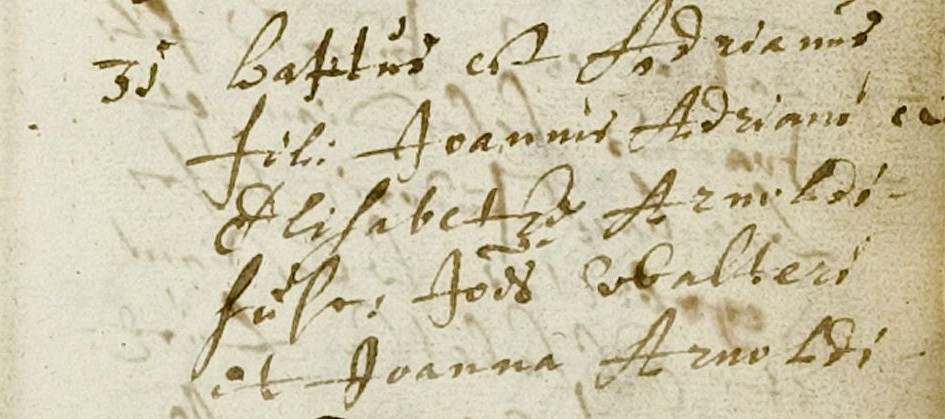 31 baptus est Adrianus
fil: Joannis Adriani et
Elisabethæ Arnoldi
susc: Joēs Walteri
et Joanna Arnoldi